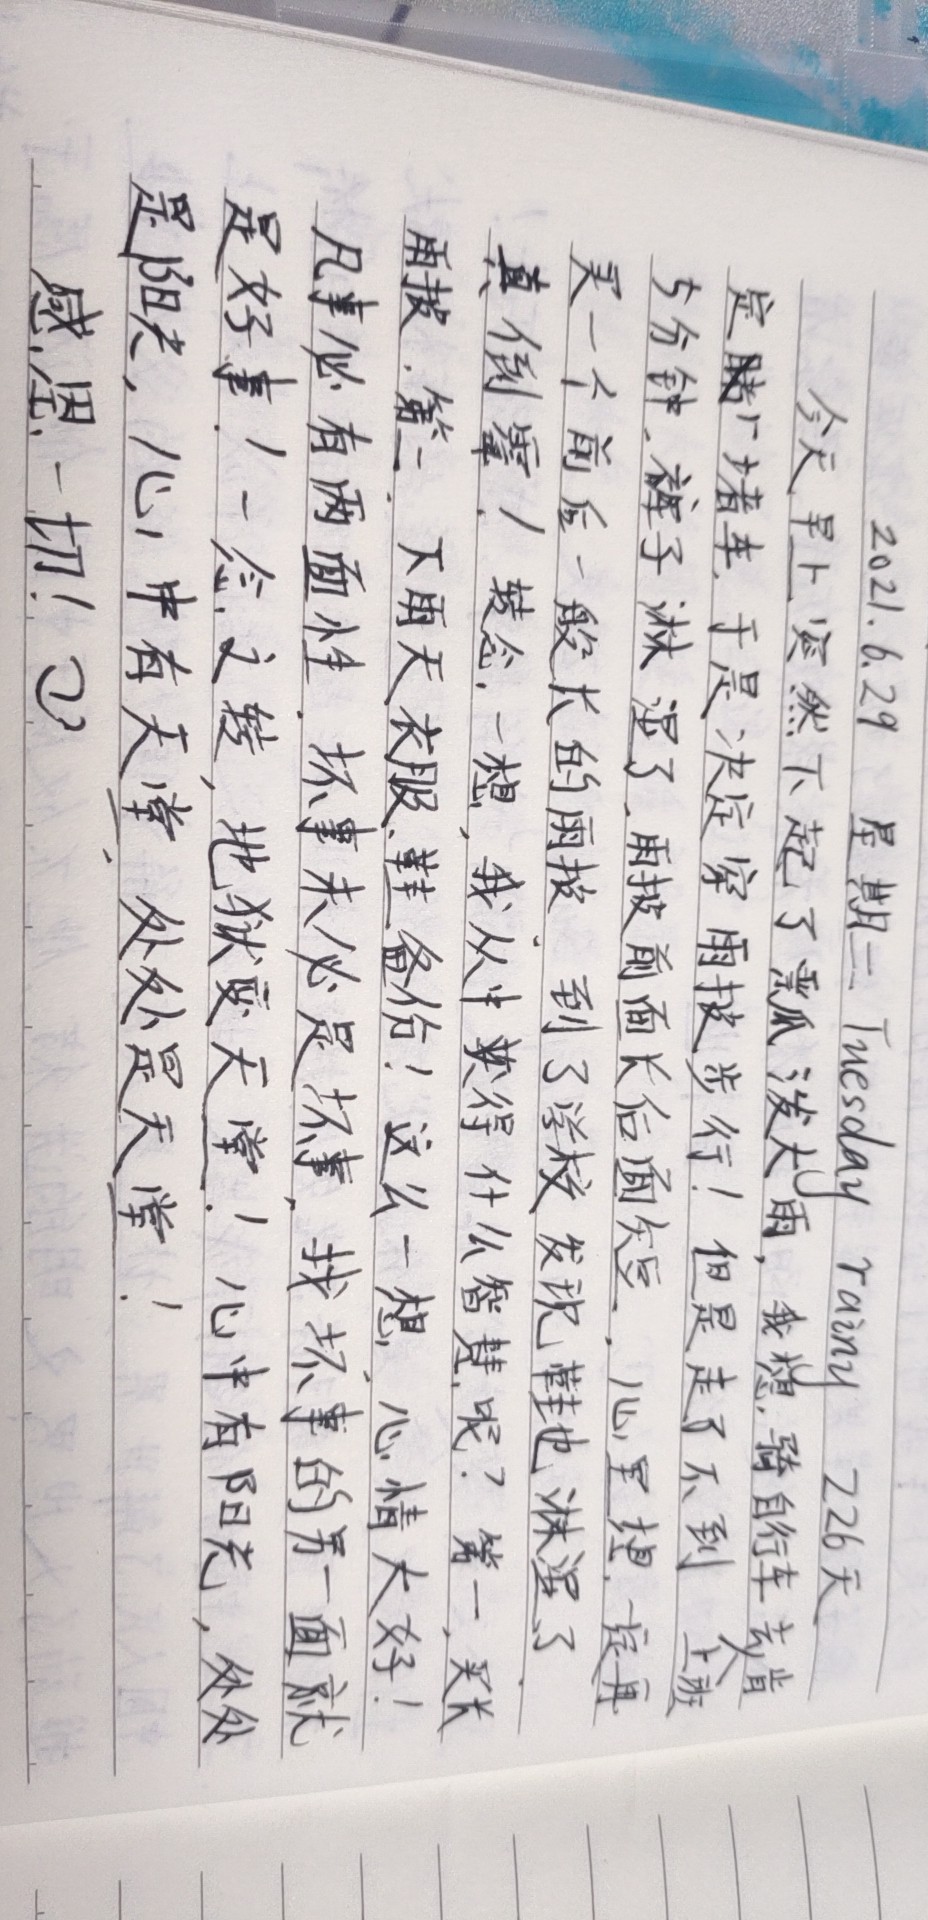 2021.6.29 星期二 Tuesday rainy 226天
今天早上突然下起了瓢泼大雨，我想，骑自行车去肯
定堵车，于是决定穿雨披步行！但是走了不到 上班
5分钟，裤子淋湿了，雨披前面长后面短，心里想，一定再
买一个前后一般长的雨披，到了学校发现鞋也淋湿了
真倒霉！转念一想，我从中获得什么智慧呢？第一，买长
雨披，第二，下雨天衣服、鞋备份！这么一想，心情大好！
凡事必有两面性，坏事未必是坏事，找坏事的另一面就
是好事！一念之转，地狱变天堂！心中有阳光，处处
是阳光，心中有天堂，处处是天堂！
感恩一切！